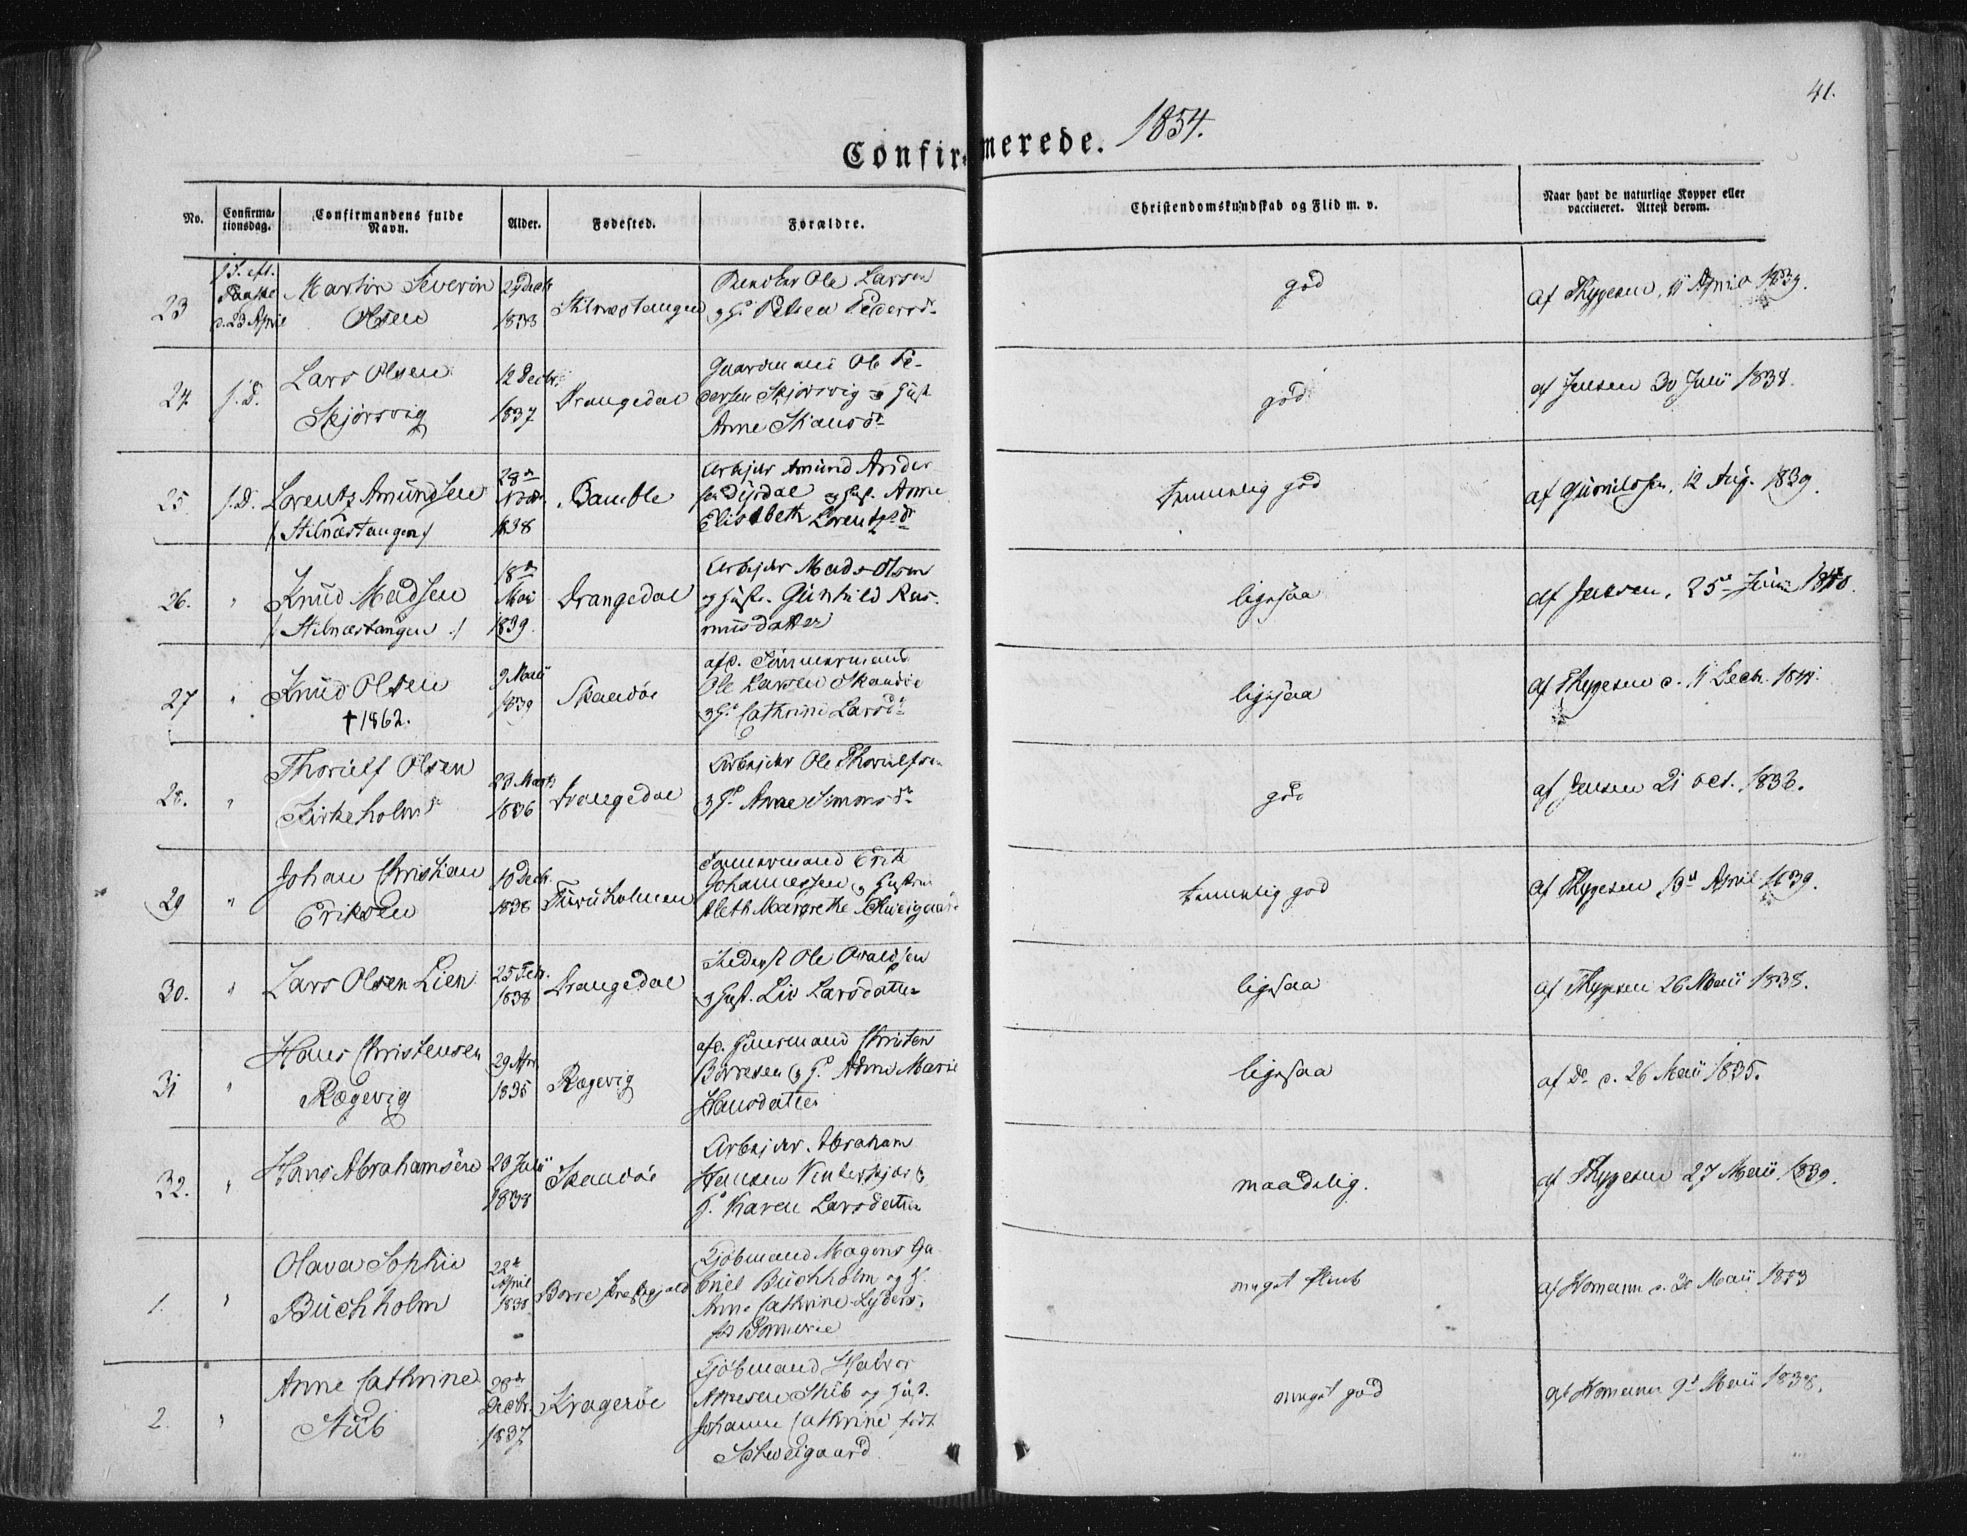 41.
Confirmerede. 1854.
No.
Confirma-
tionsdag.
Confirmandens fulde
Navn.
Alder.
Fødested.
Forældre.
Christendomskundskab og Flid m. v.
Naar havt de naturlige Kopper eller
vaccineret. Attest derom.
23
1 S. eft.
Paaske
d. 23 April
Martin Severin
Olsen
29 Decb
1838
Stilnæstangen
Ole Larsen
og H. Pedersd.
god
af Thygesen, 11 April 1839.
24
s. D.
Lars Olsen
Skjørsvig
12 Decbr.
1837
Drangedal
Gaardmand Ole Pe-
dersen Skjørsvig og Hust.
Anne
god
af Jensen 30 Juli 1838.
25
s. D.
Lorentz Amundsen
/ Stilnæstangen /
28de
1838
Bamble
Arbejder Amund Ander
sen og Hust. Anne
Elisabeth Lorentzdr
temmelig god
af 12 Aug. 1839.
26.
"
Knud Madsen
/ Stilnæstangen /
18de
Mai
1839.
Drangedal
Arbejder Mads Olsen
og Hustr. Gunhild Ras-
musdatter
ligesaa
af Jensen, 25de Juni 1840.
27
"
Knud Olsen
† 1862.
9 Maii
1839
Skandøe
afd. Tømmermand
Ole Larsen Skandøe
og H. Cathrine Larsdr
ligesaa
af Thygesen d. 11 Decb. 1841.
28.
"
Thorulf Olsen
Kirkeholm
28 Marts
1836
Drangedal
Arbejder Ole Thorulfsen
og H. Anne Simonsdr
god
af Jensen 21 Oct. 1836.
29
"
Johan Christian
Eriksen
10 Decb.
1838
Furuholmen
Tømmermand Erik
Johannessen og Hustru
Aleth Margrethe Schweigaard
temmelig god
af Thygesen 19de April 1839.
30.
"
Lars Olsen Lien
25 Feb.
1838
Drangedal
Ole
og Hust. Liv Larsdatter
ligesaa
af Thygesen 26 Maii 1838.
31
"
Hans Christensen
Rægevig
29 Apr.
1835
Rægevig
afd. Christen
Børresen og H. Anne Marie
Hansdatter
ligesaa
af Do d. 26 Maii 1835.
32.
"
Hans Abrahamsen
28 Juli
1838
Skandøe
Arbejder Abraham
Hansen Vinterkjær &
H. Karen Larsdatter
maadelig.
af Thygesen 27 Maii 1839.
1.
"
Olava Sophie
Buchholm
22de
April
1838
Borre Præstegjæld
Kjøbmand Magens Ga-
briel Buchholm og H.
Anne Cathrine
meget
af Homann d. 30 Maii 1853
2.
"
Anne Cathrine
Stub
28de
Decbr.
1837
Kragerøe
Kjøbmand Halvor
Stub og Hust.
Johanne Cathrine født
Schweigaard
meget god
af Homann 9de Maii 1838.